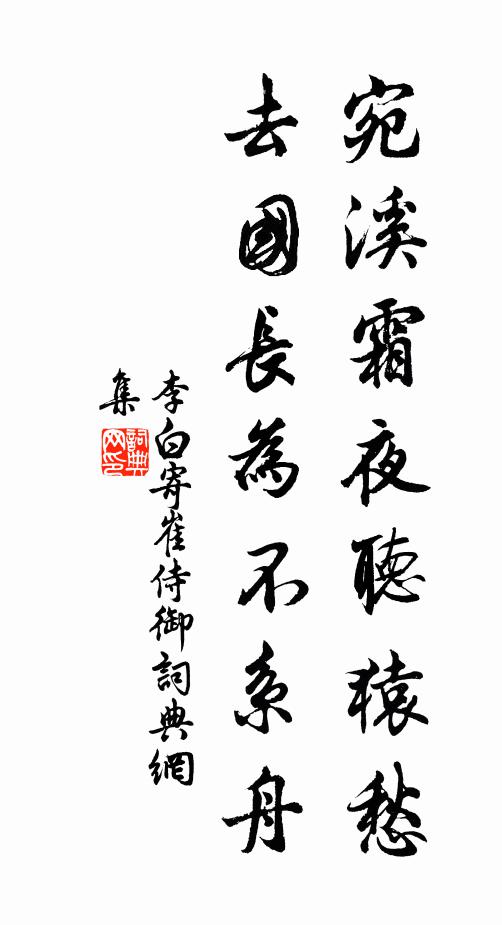 宛溪霜夜聽猿愁
去國長為不系舟
李白寄崔侍御詞典網
集
詞典
网印